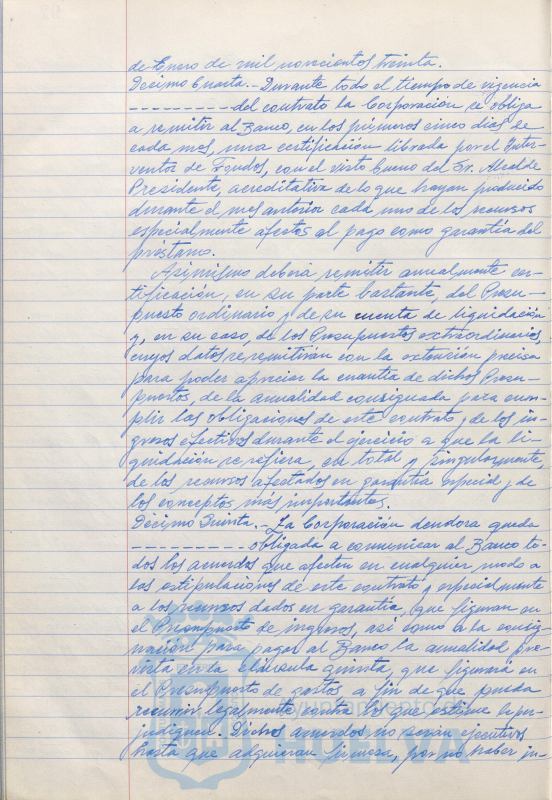 de Enero de mil novecientos treinta.
Décimo Cuarta.- Durante todo el tiempo de vigencia
- - - - - - - - - del contrato la Corporación se obliga
a remitir al Banco, en los primeros cinco dias de
cada mes, una certificación librada por el Inter-
ventor de Fondos, con el visto bueno del Sr. Alcalde
Presidente, acreditativa de lo que hayan producido
durante el mes anterior cada uno de los recursos
especialmente afectos al pago como garantía del
préstamo.
Asimismo deberá remitir anualmente cer-
tificación, en su parte bastante, del Presu-
puesto ordinario y de su cuenta de liquidación
y, en su caso, de los Presupuestos extraordinarios,
cuyos datos se remitirán con la extensión precisa
para poder apreciar la cuantía de dichos Presu-
puestos, de la anualidad consignada para cum-
plir las obligaciones de este contrato, de los in-
gresos efectivos durante el ejercicio a que la li-
quidación se refiera, en total y singularmente,
de los recursos afectados en garantía especial y de
los conceptos más importantes.
Décimo Quinta.- La Corporación deudora queda
- - - - - - - - - obligada a comunicar al Banco to-
dos los acuerdos que afecten en cualquier modo a
las estipulaciones de este contrato y especialmente
a los recursos dados en garantía que figuran en
el Presupuesto de ingresos, así como a la consig-
nación para pagar al Banco la anualidad pre-
vista en la cláusula quinta, que figurará en
el Presupuesto de gastos, a fin de que pueda
recurrir legalmente contra los que estime le per-
judiquen. Dichos acuerdos no serán ejecutivos
hasta que adquieran firmeza, por no haber in-